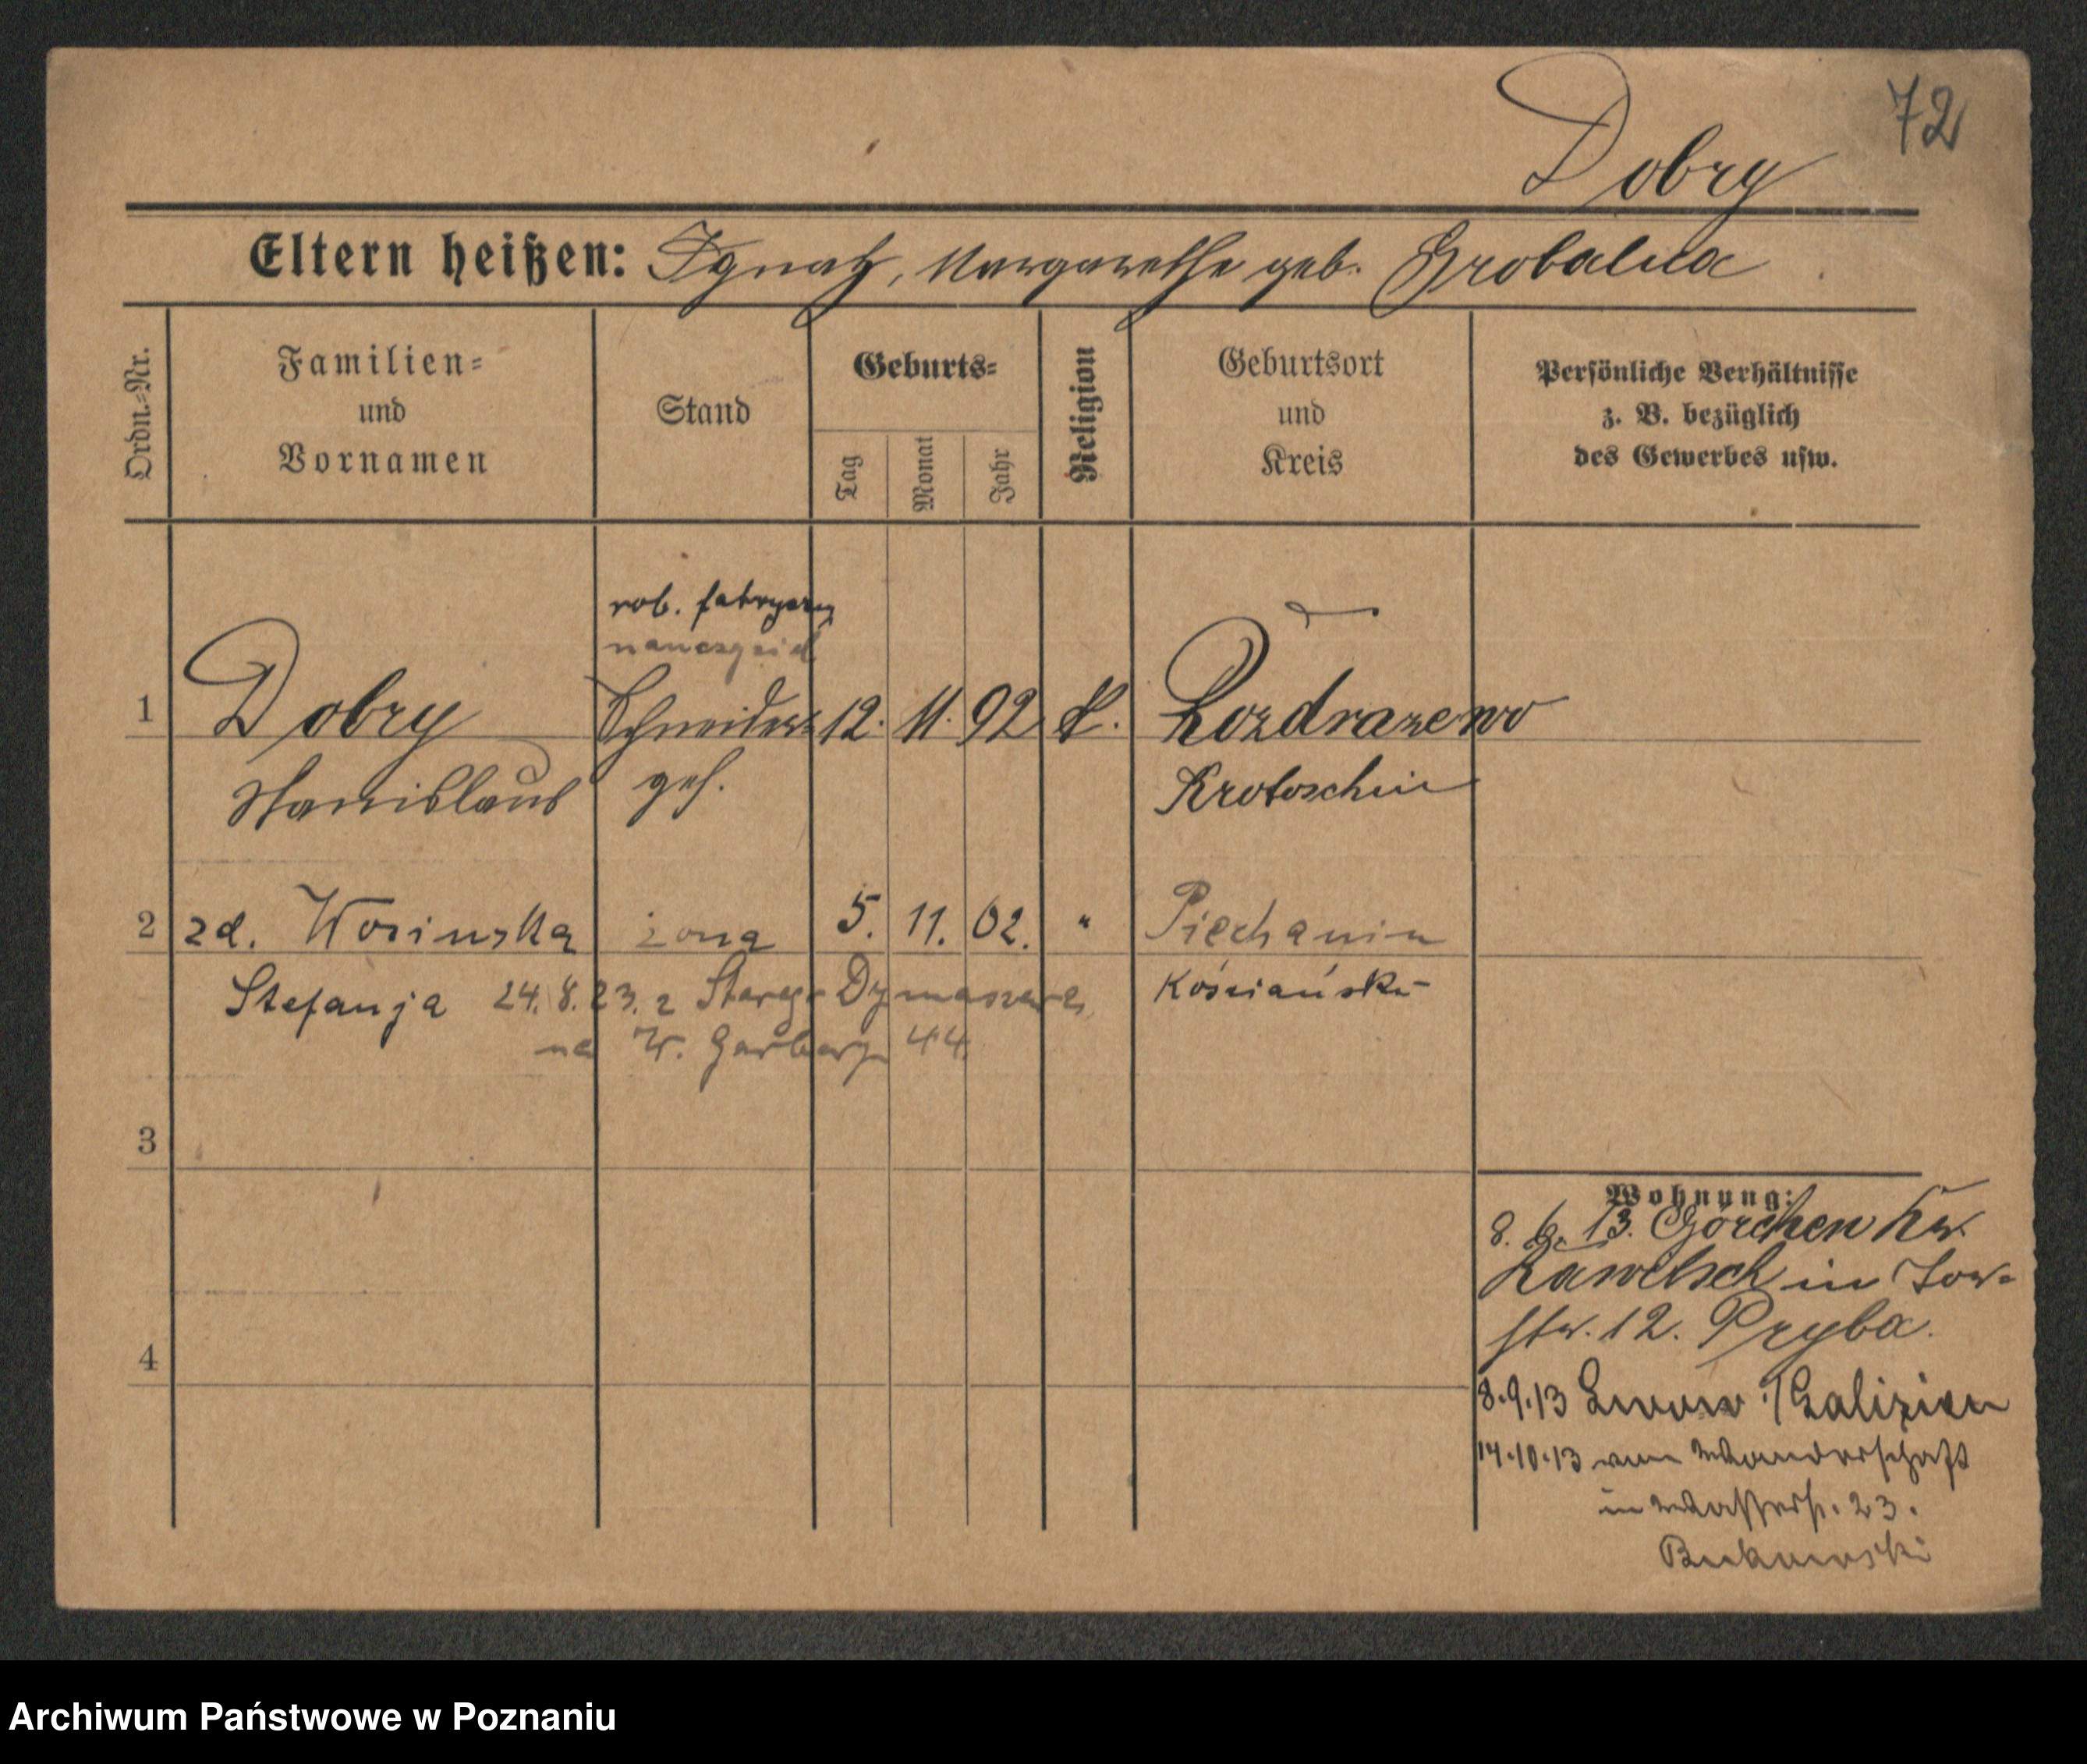 72
Dobry
Eltern heißen: Ignatz, Margarethe geb. Grobalna
Ordn.-Nr.
Familien-
und
Vornamen
Stand
Geburts-
Tag
Monat
Jahr
Religion
Geburtsort
und
Kreis
Persönliche Verhältnisse
z. B. bezüglich
des Gewerbes usw.
rob. fabryczny
1 Dobry Schneider 12. 11. 92 k. Rozdrazewo
Stanislaus geh. Krotoschin
2 zd. Wosinska żona 5. 11. 02. " Piechanin
Stefanja 24.8.23. z Starego Kościański
na W. Garbary 44.
3
Wohnung:
8. 13. Görchen Kr.
Rawitsch in
str. 12. Pryba.
4
8.9.13 Lwow Galizien
14.10.13 von Wanderschaft
in Wasserstr. 23.
Bukowski
Archiwum Państwowe w Poznaniu